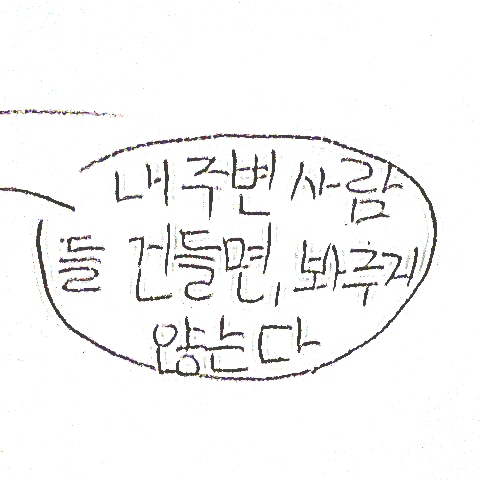 내 주변 사람
들 건들면, 봐주지
않는다